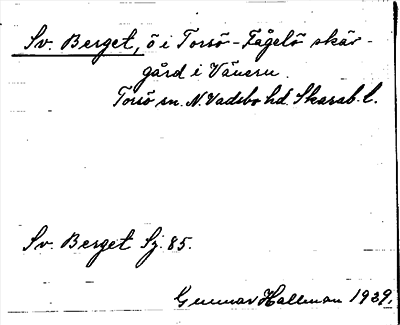 Sv. Berget, ö i Torsö-Fågelö skär-
gård i Vänern.
Torsö sn. N. Vadsbo hd. Skarab. l.
Sv. Berget Sj. 85.
Gunnar Hallman 1939.